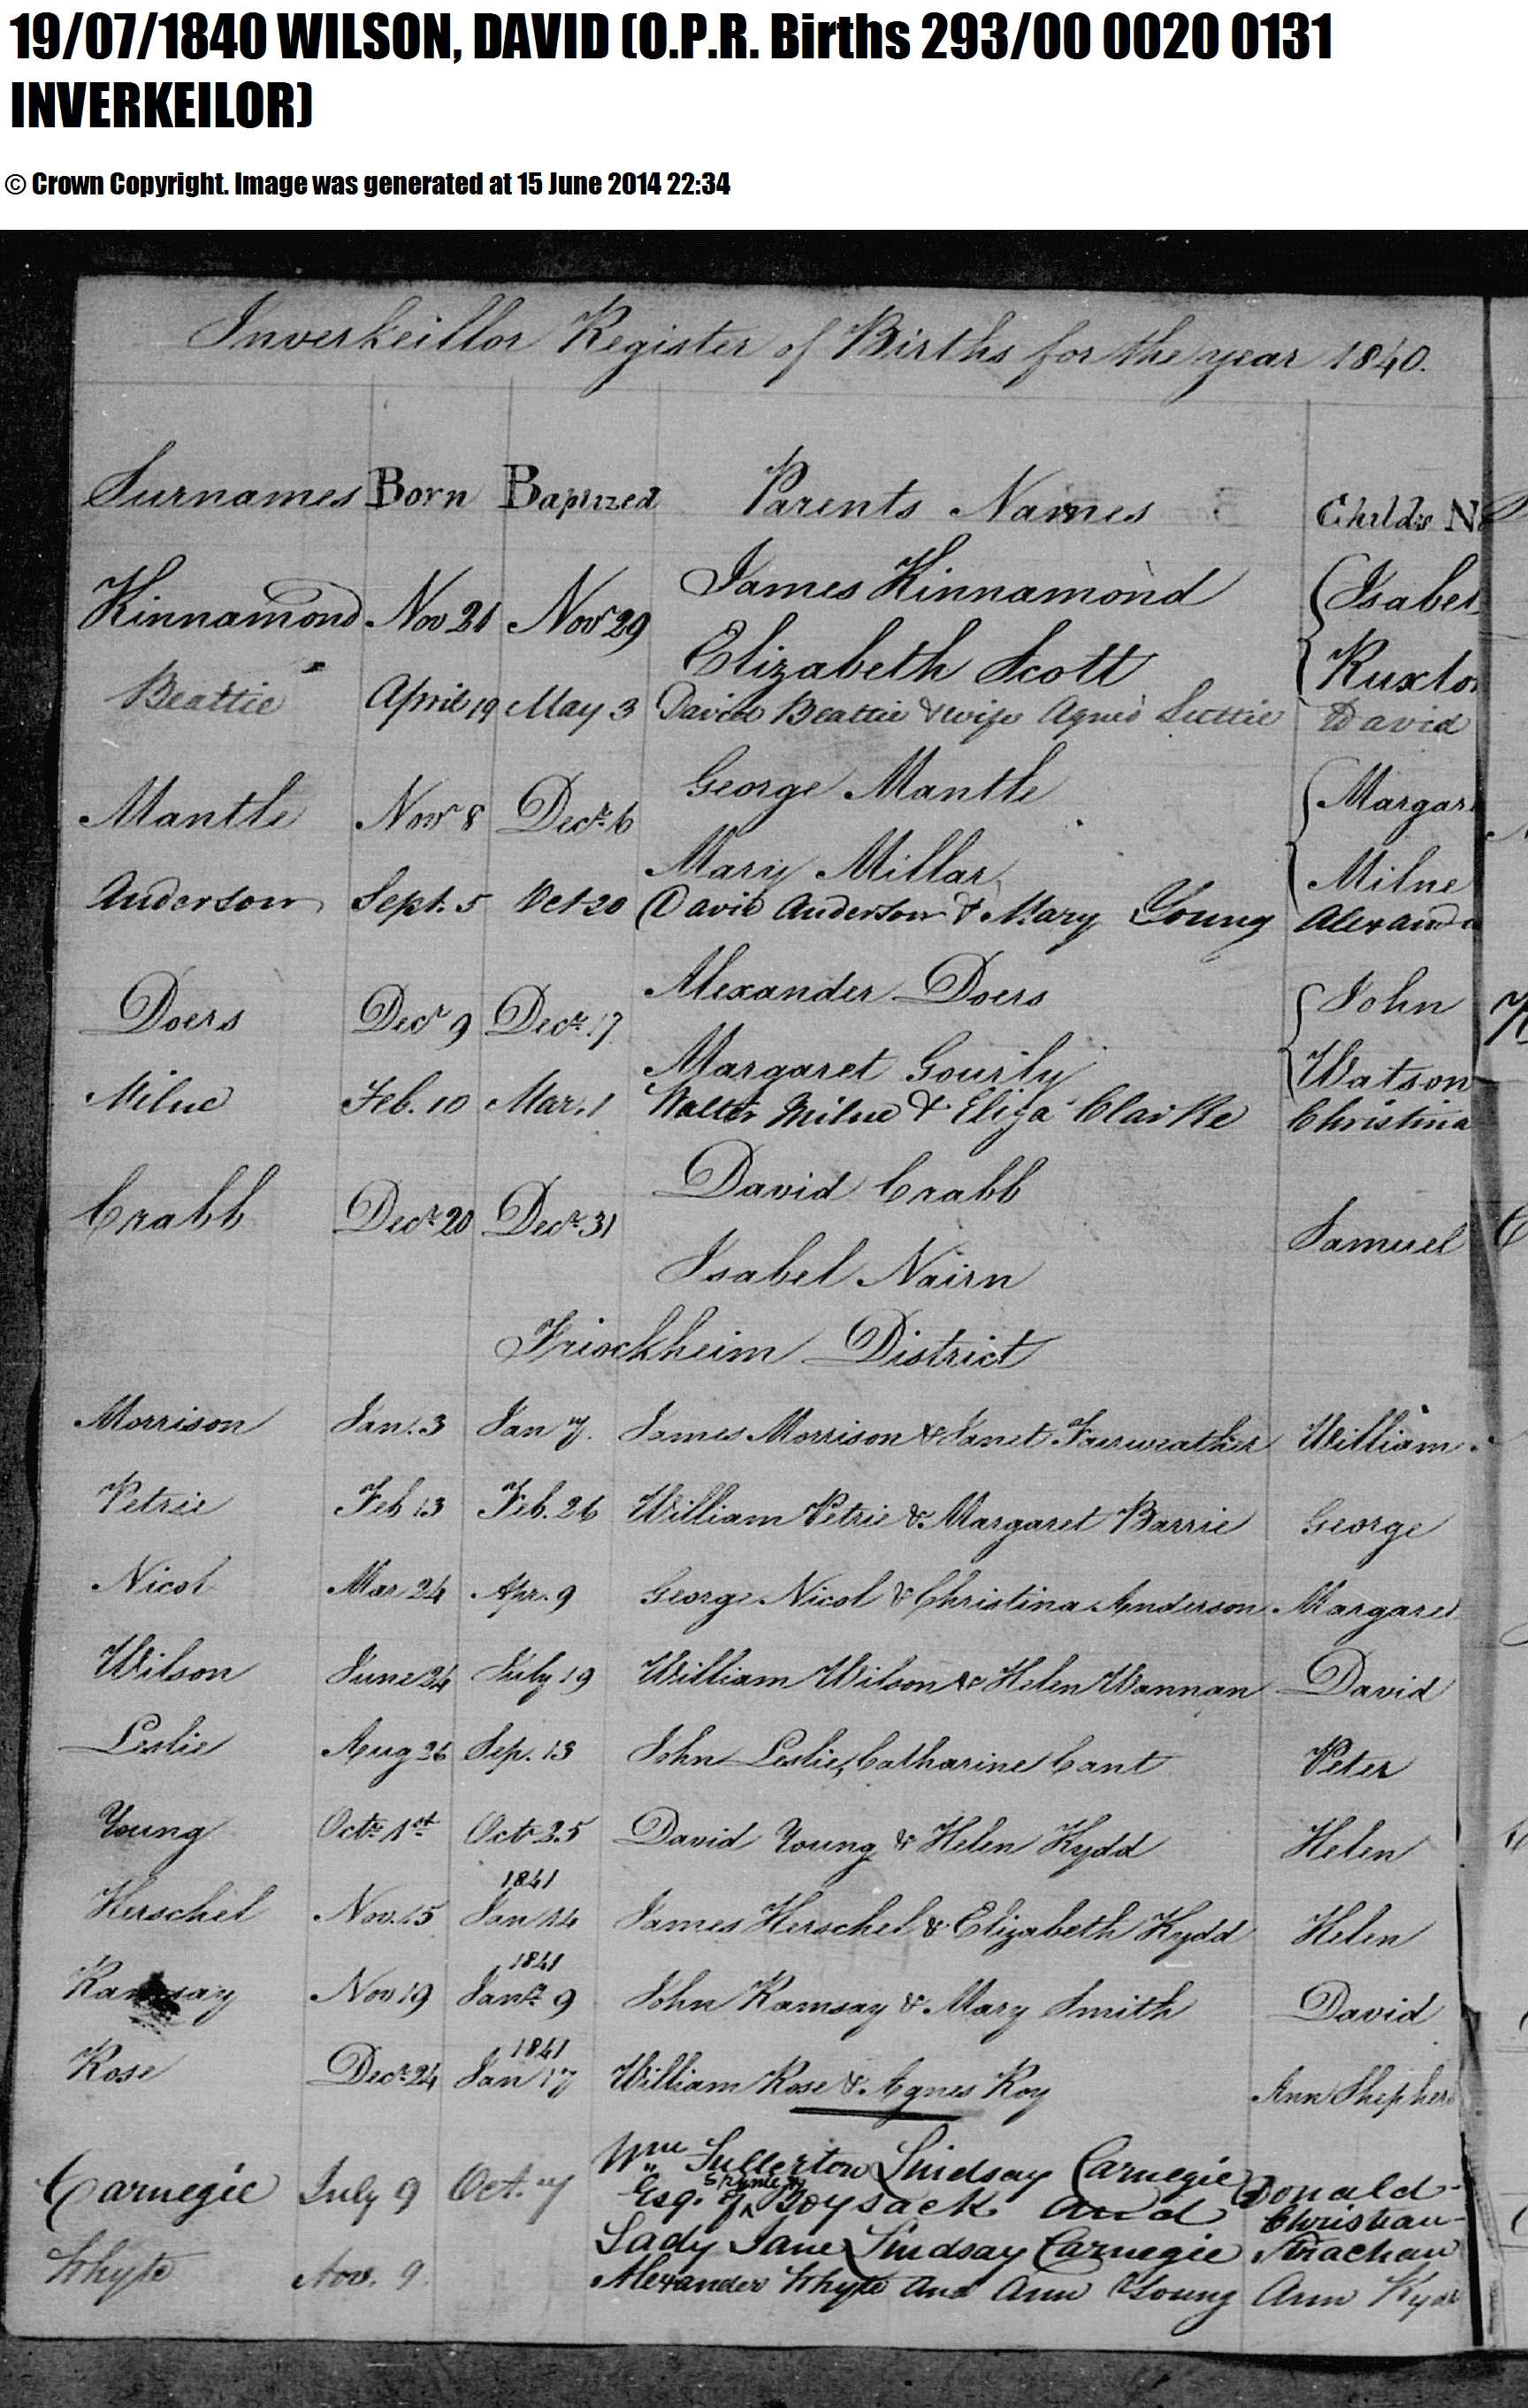 19/07/1840 WILSON, DAVID (O.P.R. Births 293/00 0020 0131
INVERKEILOR)
© Crown Copyright. Image was generated at 15 June 2014 22:34
Inverkeillor Register of Births for the year 1840.
Surnames Born Baptized Parents Names Child's N
James Kinnamond
Kinnamond Nov 21 Novr 29 Isabel
Elizabeth Scott Ruxto
Beattie April 19 May 3 David Beattie & wife Agnes Suttie David
George Mantle
Mantle Novr 8 Decr. 6 Margar
Mary Millar Milne
Anderson Sept. 5 Oct 20 David Anderson & Mary Young Alexand
Alexander Doers
Doers Decr 9 Decr. 17 John
Margaret Gourly Watson
Milne Feb. 10 Mar. 1 Walter Milne & Eliza Clarke Christina
David Crabb
Crabb Decr. 20 Decr. 31 Samuel
Isabel Nairn
Friockheim District
Morrison Jan. 3 Jan 7. James Morrison & Janet Fairweather William
Petrie Feb 13 Feb. 26 William Petrie & Margaret Barrie George
Nicol Mar 24 Apr. 9 George Nicol & Christina Anderson Margaret
Wilson June 24 July 19 William Wilson & Helen Wannan David
Leslie Aug 26 Sep. 13 John Leslie, Catharine Cant Peter
Young Octr. 1st Octr 25 David Young & Helen Kydd Helen
1841
Herschel Nov. 15 Jan 14 James Herschel & Elizabeth Kydd Helen
1841
Ramsay Nov 19 Janr. 9 John Ramsay & Mary Smith David
1841
Rose Decr. 24 Jan 17 William Rose & Agnes Roy Ann Shepher
Wm Fullerton Lindsay Carnegie
Carnegie July 9 Oct. 7 Esq. of Spynie & Boysack and Donald
Christian
Lady Jane Lindsay Carnegie Strachan
Whyte Nov. 9. Alexander Whyte and Ann Young Ann Kyd